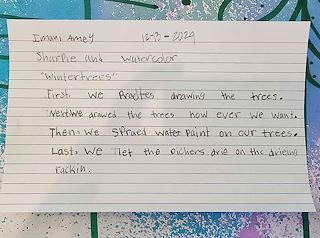 Imani Amey 12-8-2024
Sharpie and watercolor
"Wintertrees"
First, we Practies drawing the trees.
Next,We drawed the trees how ever we want.
Then, we Spraed water Paint on our trees.
Last, We let the Pichers drie on the drieing
rackin.